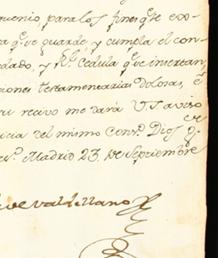 uenio para los fines q.e ex-
ra q.e guarde, y cumpla el con-
dado, y R.l Cedula q.e incertan
ciones testamentarias dolosas, è
su recivo me dará V.S. aviso
icia del mismo Cons.o Dios g.e
s.s Madrid 23 de Septiembre
de Valdellano